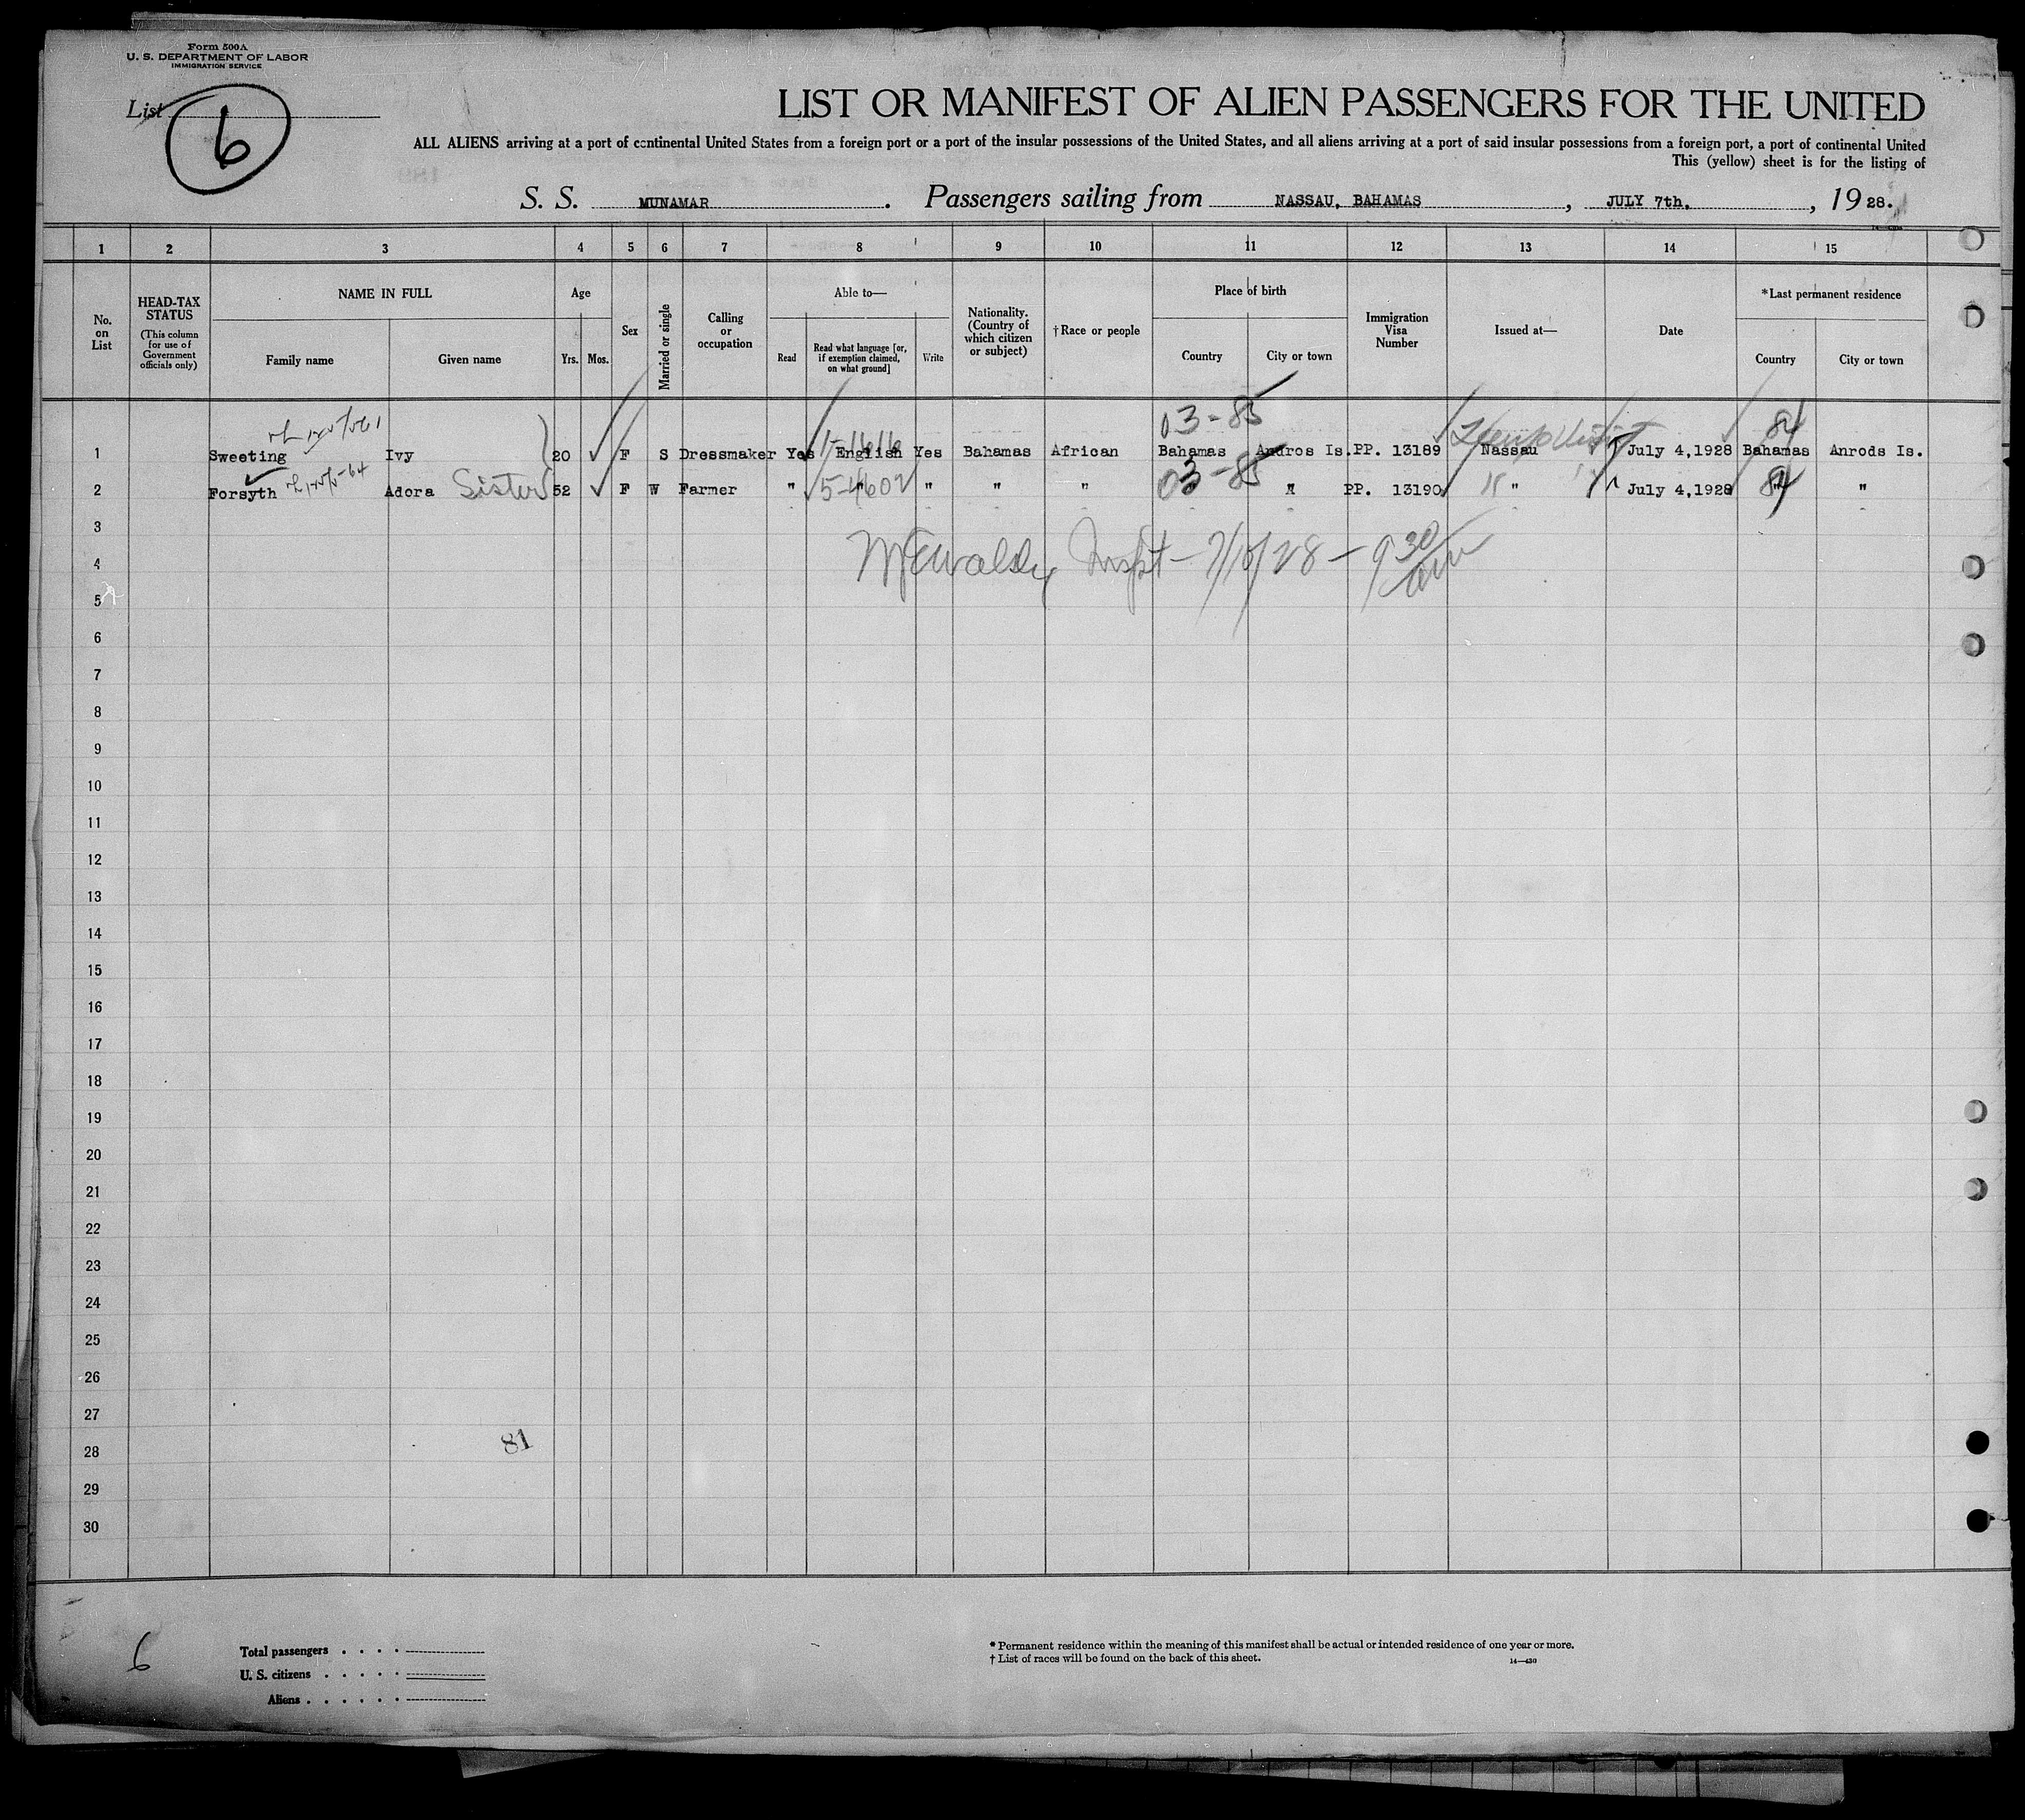 Form 500A
U. S. DEPARTMENT OF LABOR
IMMIGRATION SERVICE
List
6
LIST OR MANIFEST OF ALIEN PASSENGERS FOR THE UNITED
ALL ALIENS arriving at a port of continental United States from a foreign port or a port of the insular possessions of the United States, and all aliens arriving at a port of said insular possessions from a foreign port, a port of continental United
This (yellow) sheet is for the listing of
S. S. MUNAMAR. Passengers sailing from NASSAU, BAHAMAS, JULY 7th., 1928.
1 2 3 4 5 6 7 8 9 10 11 12 13 14 15
No. on List
HEAD-TAX STATUS (This column for use of Government officials only)
NAME IN FULL
Family name
Given name
Age
Yrs.
Mos.
Sex
Married or single
Calling or occupation
Able to—
Read
Read what language [or, if exemption claimed, on what ground]
Write
Nationality. (Country of which citizen or subject)
†Race or people
Place of birth
Country
City or town
Immigration Visa Number
Issued at—
Date
*Last permanent residence
Country
City or town
03-85 84
1 Sweeting Ivy 20 F S Dressmaker Yes English Yes Bahamas African Bahamas Andros Is. PP. 13189 Nassau July 4,1928 Bahamas Anrods Is.
5-4602 03-85 84
2 Forsyth Adora Sister 52 F W Farmer " " " " " " PP. 13190 " July 4,1928 " "
3
Inspt - 7/10/28 - 9 30 am
4
5
6
7
8
9
10
11
12
13
14
15
16
17
18
19
20
21
22
23
24
25
26
27
81
28
29
30
6
Total passengers . . . .
U. S. citizens . . . . .
Aliens . . . . . .
* Permanent residence within the meaning of this manifest shall be actual or intended residence of one year or more.
† List of races will be found on the back of this sheet.
14—430